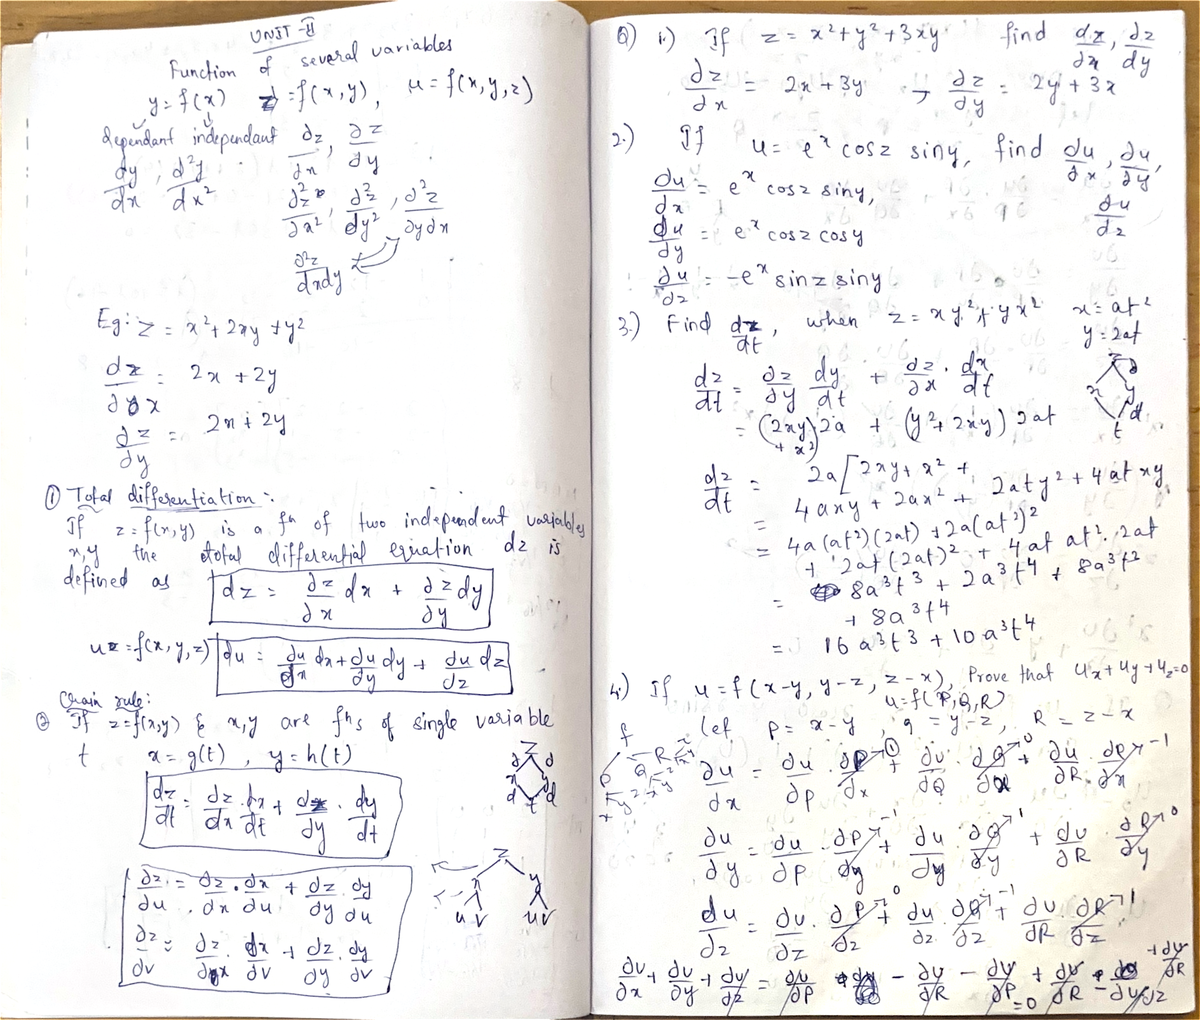 UNIT-II
Function of several variables
y = f(x) z = f(x,y), u = f(x,y,z)
dependant independant ∂z/∂x, ∂z/∂y
dy/dx, d²y/dx² ∂²z/∂x², ∂²z/∂y², ∂²z/∂y∂x
∂²z/∂x∂y
Eg: z = x² + 2xy + y²
∂z/∂x = 2x + 2y
∂z/∂y = 2x + 2y
① Total differentiation :-
If z = f(x,y) is a fn of two independent variables
x,y the total differential equation dz is
defined as dz = ∂z/∂x dx + ∂z/∂y dy
u = f(x,y,z) du = ∂u/∂x dx + ∂u/∂y dy + ∂u/∂z dz
Chain rule:
② If z = f(x,y) & x,y are fns of single variable
t x = g(t), y = h(t)
dz/dt = ∂z/∂x . dx/dt + ∂z/∂y . dy/dt
z
∂ ∂
x y
d d
t
∂z/∂u = ∂z/∂x . ∂x/∂u + ∂z/∂y . ∂y/∂u
∂z/∂v = ∂z/∂x . ∂x/∂v + ∂z/∂y . ∂y/∂v
z
x y
u v u v
Q) 1.) If z = x² + y² + 3xy find ∂z/∂x, ∂z/∂y
∂z/∂x = 2x + 3y , ∂z/∂y = 2y + 3x
2.) If u = e^x cosz siny, find ∂u/∂x, ∂u/∂y, ∂u/∂z
∂u/∂x = e^x cosz siny,
∂u/∂y = e^x cosz cosy
∂u/∂z = -e^x sinz siny
3.) Find dz/dt, when z = xy² + yx² x = at²
y = 2at
dz/dt = ∂z/∂y dy/dt + ∂z/∂x . dx/dt
z
x y
t
= (2xy + x²) 2a + (y² + 2xy) 2at
dz/dt = 2a[2xy + x² +
= 4axy + 2ax² + 2aty² + 4atxy
= 4a(at²)(2at) + 2a(at²)²
+ 2at(2at)² + 4at at² . 2at
= 8a³t³ + 2a³t⁴ + 8a³t²
+ 8a³t⁴
= 16a³t³ + 10a³t⁴
4.) If u = f(x-y, y-z, z-x), Prove that ux + uy + uz = 0
u = f(P,Q,R)
let P = x-y, q = y-z, R = z-x
f
P Q R
∂u/∂x = ∂u/∂P . ∂P/∂x →① + ∂u/∂Q . ∂Q/∂x →0 + ∂u/∂R . ∂R/∂x →-1
∂u/∂y = ∂u/∂P . ∂P/∂y →-1 + ∂u/∂y . ∂Q/∂y →1 + ∂u/∂R . ∂R/∂y →0
∂u/∂z = ∂u/∂z . ∂P/∂z →0 + ∂u/∂z . ∂Q/∂z →-1 + ∂u/∂R . ∂R/∂z →1
∂u/∂x + ∂u/∂y + ∂u/∂z = ∂u/∂P - ∂u/∂R - ∂u/∂P + ∂u/∂R
= 0